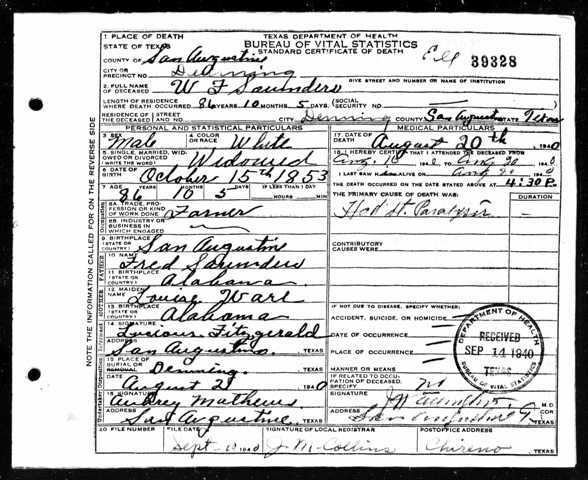 NOTE THE INFORMATION CALLED FOR ON THE REVERSE SIDE
1 PLACE OF DEATH
STATE OF TEXAS
TEXAS DEPARTMENT OF HEALTH
BUREAU OF VITAL STATISTICS
STANDARD CERTIFICATE OF DEATH
39328
COUNTY OF San Augustine
CITY OR PRECINCT NO. Denning
GIVE STREET AND NUMBER OR NAME OF INSTITUTION
2. FULL NAME OF DECEASED W F Saunders
LENGTH OF RESIDENCE WHERE DEATH OCCURRED 86 YEARS 10 MONTHS 5 DAYS (SOCIAL SECURITY NO.
RESIDENCE OF THE DECEASED STREET AND NO. Denning COUNTY San August STATE Texas
PERSONAL AND STATISTICAL PARTICULARS
3 SEX Male
4 COLOR OR RACE White
5. SINGLE, MARRIED, WIDOWED OR DIVORCED (WRITE THE WORD) Widowed
6 DATE OF BIRTH October 15th 1853
7 AGE YEARS MONTHS DAYS IF LESS THAN 1 DAY
86 10 5 HOURS MIN
8A. TRADE, PROFESSION OR KIND OF WORK DONE Farmer
8B. INDUSTRY OR BUSINESS IN WHICH ENGAGED
9 BIRTHPLACE (STATE OR COUNTRY) San Augustine
10 NAME Fred Saunders
11 BIRTHPLACE (STATE OR COUNTRY) Alabama
12 MAIDEN NAME Louise Ware
13 BIRTHPLACE (STATE OR COUNTRY) Alabama
14 SIGNATURE Lucious Fitzgerald
ADDRESS San Augustine TEXAS
15 PLACE OF BURIAL OR REMOVAL Denning TEXAS
DATE August 21 1940
16 SIGNATURE Aubrey Mathews
ADDRESS San Augustine, TEXAS
MEDICAL PARTICULARS
17. DATE OF DEATH August 20th 1940
18. I HEREBY CERTIFY THAT I ATTENDED THE DECEASED FROM
Aug. 10 1940 TO Aug 20 1940
I LAST SAW HIM ALIVE ON Aug 20 1940
THE DEATH OCCURRED ON THE DATE STATED ABOVE AT 4:30 P. M.
THE PRIMARY CAUSE OF DEATH WAS: DURATION
Had Paralysis
CONTRIBUTORY CAUSES WERE
IF NOT DUE TO DISEASE, SPECIFY WHETHER:
ACCIDENT, SUICIDE, OR HOMICIDE
DATE OF OCCURRENCE
PLACE OF OCCURRENCE
MANNER OR MEANS
IF RELATED TO OCCUPATION OF DECEASED, SPECIFY no
SIGNATURE M.D.
ADDRESS San Augustine
DEPARTMENT OF HEALTH
RECEIVED
SEP 14 1940
TEXAS
BUREAU OF VITAL STATISTICS
20 FILE NUMBER
FILE DATE Sept 1940
SIGNATURE OF LOCAL REGISTRAR J M Collins
POSTOFFICE ADDRESS Chireno